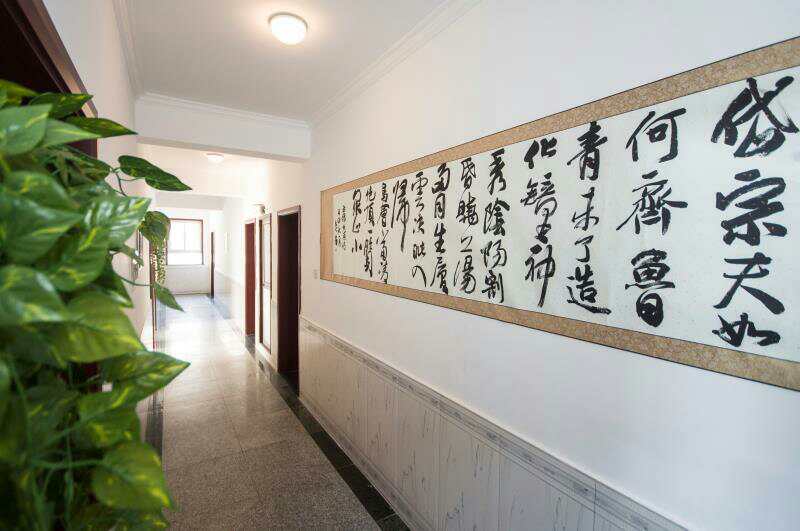 岱宗夫如
何齊魯
青未了造
化鍾神
秀陰陽割
昏曉盪
胸生層
雲決眦入
歸
鳥會當凌
絶頂一覽
衆山小